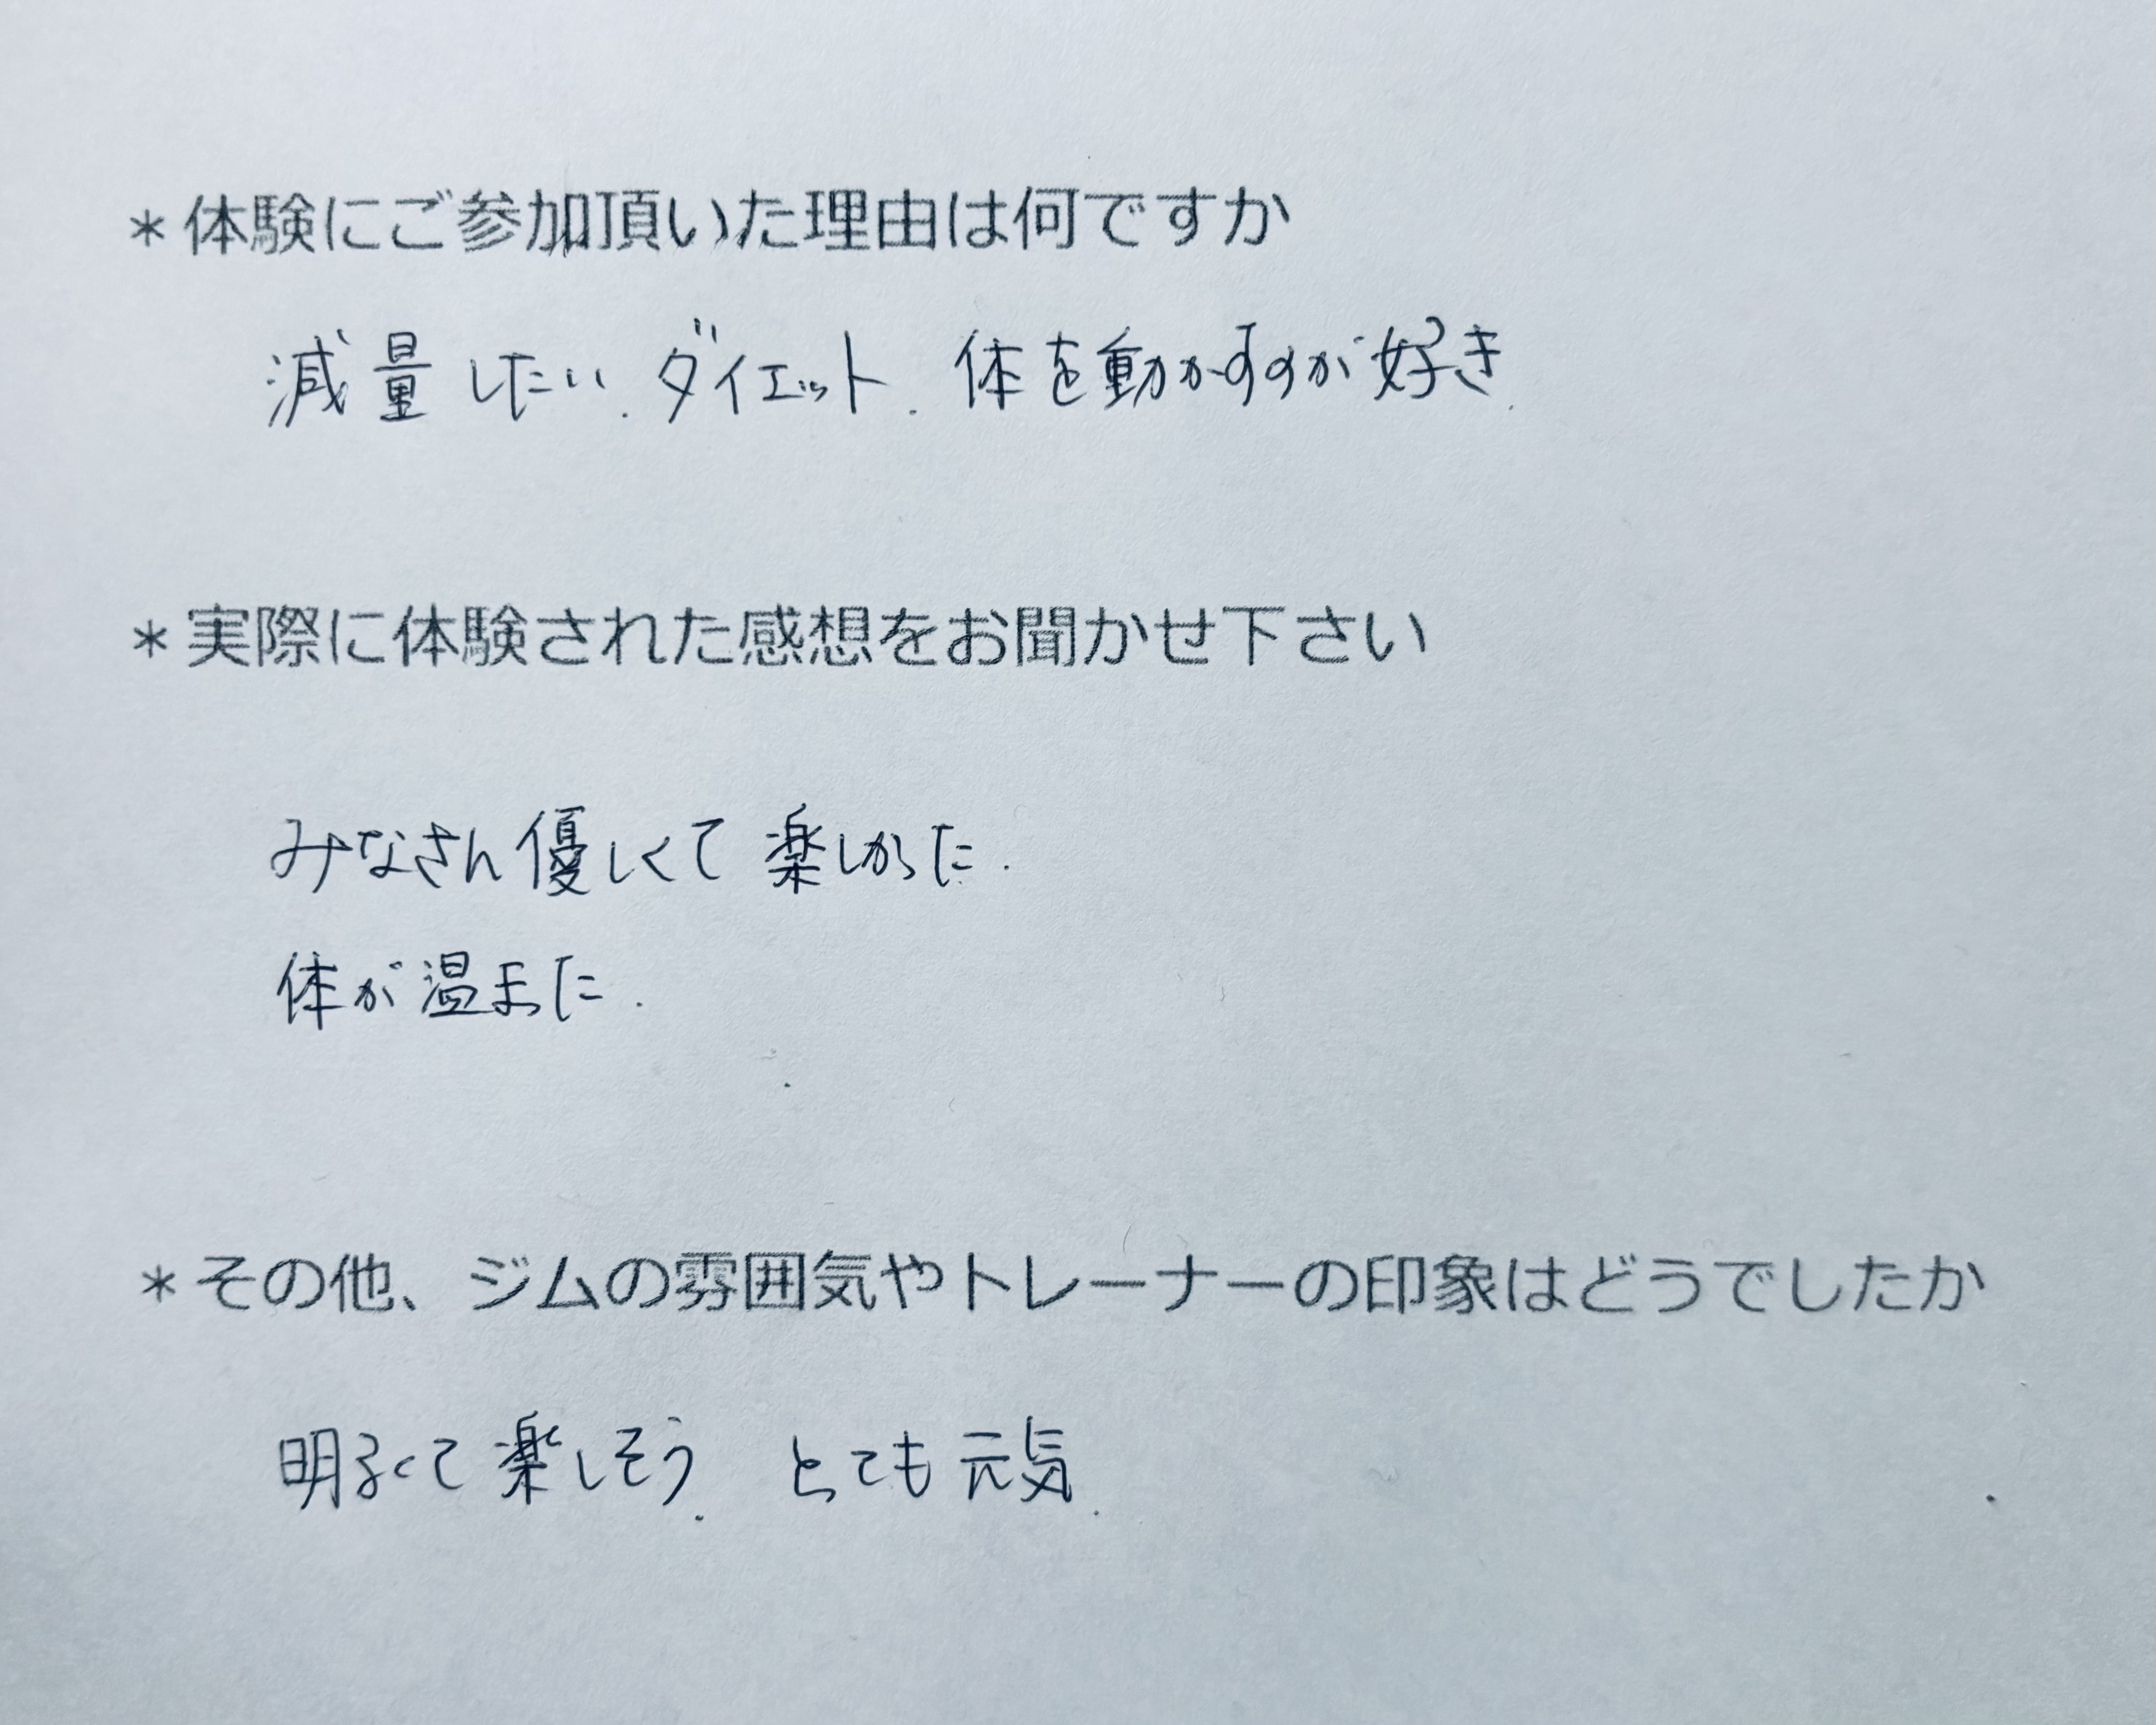 *体験にご参加頂いた理由は何ですか
減量したい.ダイエット.体を動かすのが好き.
*実際に体験された感想をお聞かせ下さい
みなさん優しくて楽しかった.
体が温まった.
*その他、ジムの雰囲気やトレーナーの印象はどうでしたか
明るくて楽しそう.とても元気.